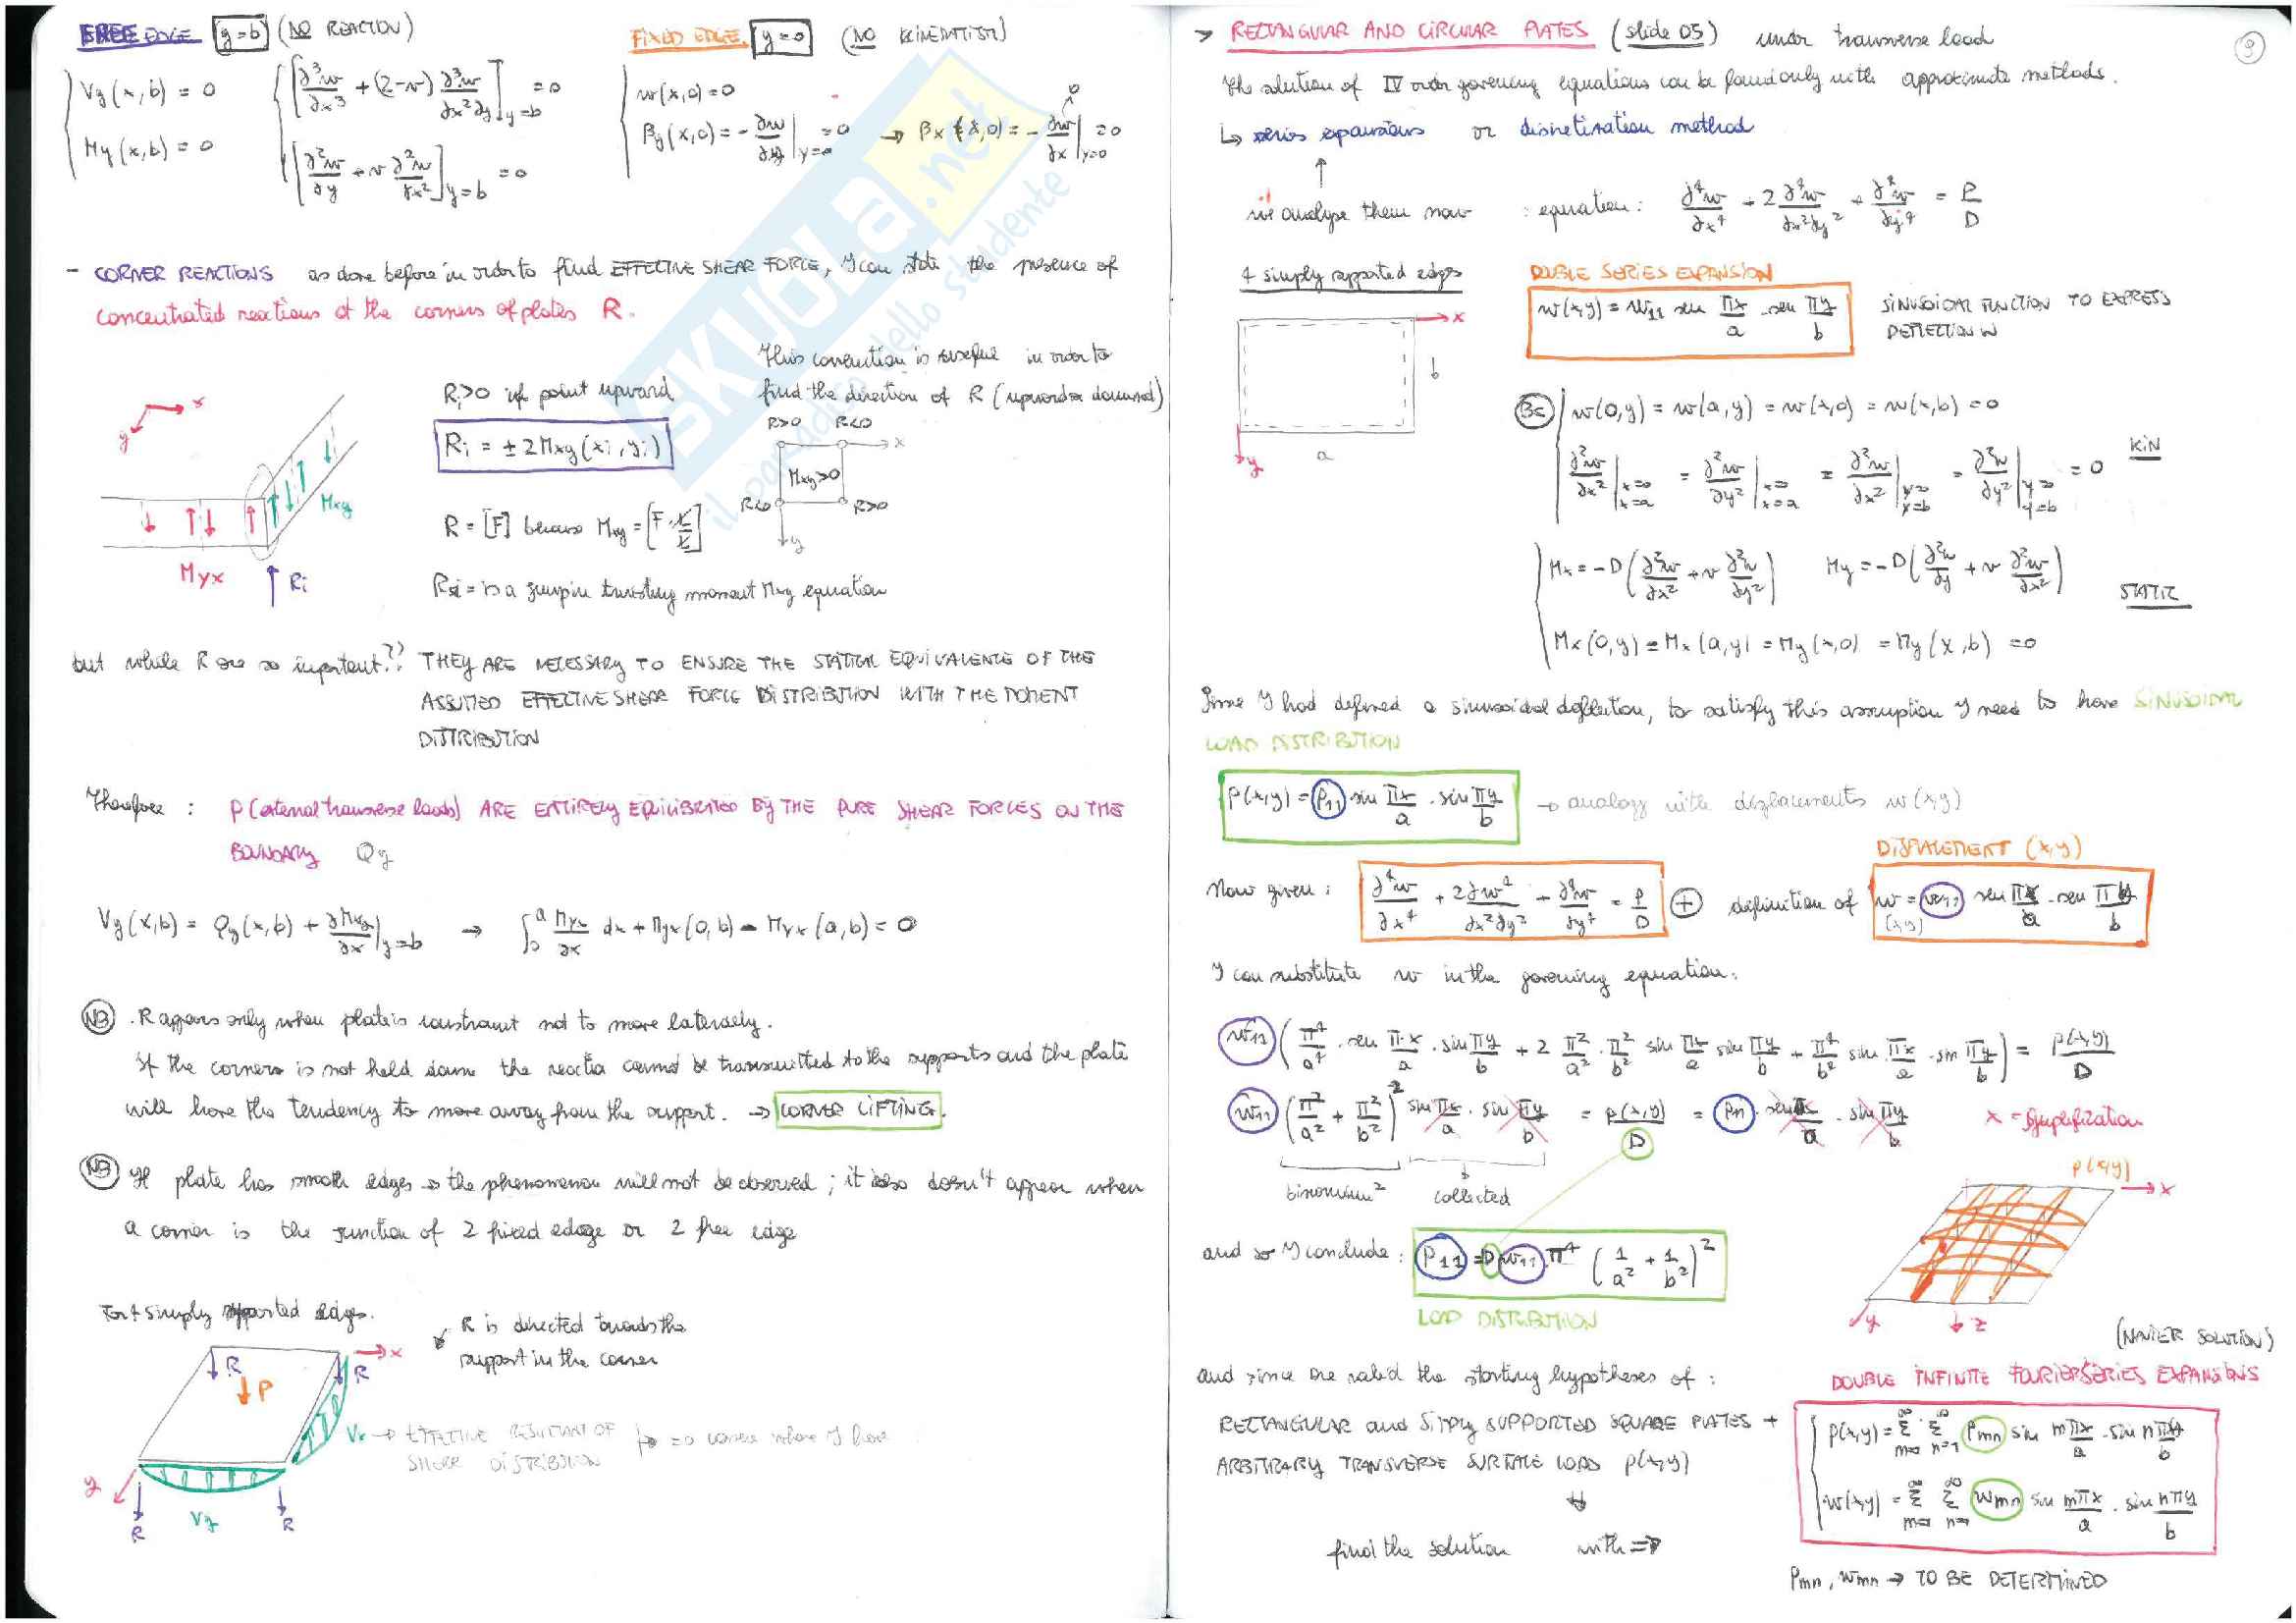 FREE EDGE y=b (NO REACTION)
Vy(x,b) = 0
My(x,b) = 0
[∂³w/∂x³ + (2-ν) ∂³w/∂x²∂y] y=b = 0
[∂²w/∂y + ν ∂²w/∂x²] y=b = 0
FIXED EDGE y=0 (NO KINEMATISM)
w(x,0)=0
βy(x,0) = - ∂w/∂y | y=0 = 0 → βx (x,0) = - ∂w/∂x | y=0 = 0
- CORNER REACTIONS as done before in order to find EFFECTIVE SHEAR FORCE, I can note the presence of
concentrated reactions at the corners of plates R.
x
y
Mxy
Myx
Ri
Ri>0 if point upward
Ri = ± 2Mxy(xi, yi)
R = [F] because Mxy = [F · L/L]
This convention is useful in order to
find the direction of R (upward or downward)
R>0 R<0 x
Mxy>0
R<0 R>0
y
but R are so important?? THEY ARE NECESSARY TO ENSURE THE STATICAL EQUIVALENCE OF THE
ASSUMED EFFECTIVE SHEAR FORCE DISTRIBUTION WITH THE MOMENT
DISTRIBUTION
Therefore : P (external transverse loads) ARE ENTIRELY EQUILIBRATED BY THE PURE SHEAR FORCES ON THE
BOUNDARY Qy
Vy(x,b) = Qy(x,b) + ∂Mxy/∂x | y=b → ∫₀ᵃ Myx/∂x dx + Myx(0,b) - Myx(a,b) = 0
NB . R appears only when plate is constraint not to move laterally.
If the corners is not held down the reaction cannot be transmitted to the supports and the plate
will have the tendency to move away from the support. → CORNER LIFTING.
NB If plate has smooth edges → the phenomenon will not be observed; it also doesn't appear when
a corner is the junction of 2 fixed edge or 2 free edge
For 4 simply supported edges.
R is directed towards the
support in the corner
R P R x
y
Vx → EFFECTIVE RESULTANT OF
SHEAR DISTRIBUTION
=0 where I have
R Vy R
> RECTANGULAR AND CIRCULAR PLATES (slide 05) under transverse load
9
The solution of IV order governing equations can be found only with approximate methods.
↳ series expansions or discretization method
↑
we analyze them now : equation: ∂⁴w/∂x⁴ + 2 ∂⁴w/∂x²∂y² + ∂⁴w/∂y⁴ = P/D
4 simply supported edges
x
b
a
y
DOUBLE SERIES EXPANSION
w(x,y) = w11 sen πx/a · sen πy/b
SINUSOIDAL FUNCTION TO EXPRESS
DEFLECTION W
BC w(0,y) = w(a,y) = w(x,0) = w(x,b) = 0
∂²w/∂x² | x=0 x=a = ∂²w/∂y² | x=0 x=a = ∂²w/∂x² | y=0 y=b = ∂²w/∂y² | y=0 y=b = 0
KIN
Mx = -D (∂²w/∂x² + ν ∂²w/∂y²) My = -D (∂²w/∂y + ν ∂²w/∂x²)
STATIC
Mx(0,y) = Mx(a,y) = My(x,0) = My(x,b) = 0
Since I had defined a sinusoidal deflection, to satisfy this assumption I need to have SINUSOIDAL
LOAD DISTRIBUTION
P(x,y) = P11 sin πx/a · sin πy/b → analogy with displacements w(x,y)
DISPLACEMENT (x,y)
Now given : ∂⁴w/∂x⁴ + 2∂w⁴/∂x²∂y² + ∂⁴w/∂y⁴ = P/D + definition of w = w11 sen πx/a · sen πy/b
(x,y)
I can substitute w in the governing equation:
w11 (π⁴/a⁴ · sen πx/a · sin πy/b + 2 π²/a² · π²/b² sin πx/a sin πy/b + π⁴/b² sin πx/a · sin πy/b) = P(x,y)/D
w11 (π²/a² + π²/b²)² sin πx/a · sin πy/b = P(x,y)/D = P11 · sen πx/a · sin πy/b x = Simplification
binomium² collected
P(x,y)
x
and so I conclude : P11 = D w11 π⁴ (1/a² + 1/b²)²
LOAD DISTRIBUTION
y z
(NAVIER SOLUTION)
and since are valid the starting hypotheses of :
RECTANGULAR and SIMPLY SUPPORTED SQUARE PLATES +
ARBITRARY TRANSVERSE SURFACE LOAD P(x,y)
find the solution with ⇒
DOUBLE INFINITE FOURIER SERIES EXPANSIONS
P(x,y) = Σ m=1 ∞ Σ n=1 ∞ Pmn sin mπx/a · sin nπy/b
w(x,y) = Σ m=1 ∞ Σ n=1 ∞ wmn sin mπx/a · sin nπy/b
Pmn, wmn → TO BE DETERMINED
SKUOLA.net